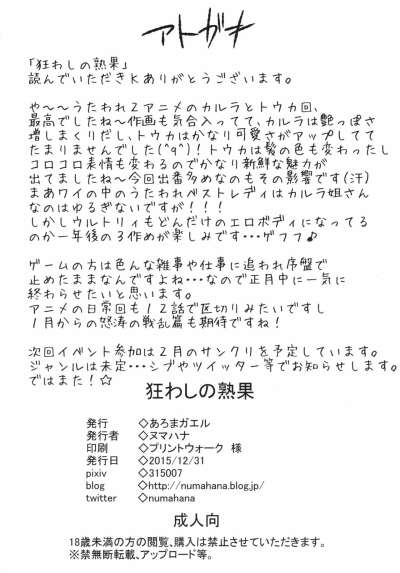 アトガキ
「狂わしの熟果」
読んでいただきKありがとうございます。
や～～うたわれ2アニメのカルラとトウカ回、
最高でしたね～作画も気合入ってて、カルラは艶っぽさ
増しまくりだし、トウカはかなり可愛さがアップしてて
たまりませんでした(^q^)!トウカは髪の色も変わったし
コロコロ表情も変わるのでかなり新鮮な魅力が
出てましたね～今回出番多めなのもその影響です(汗)
まあワイの中のうたわれベストレディはカルラ姉さん
なのはゆるぎないですが!!!
しかしウルトリィもどんだけのエロボディになってる
のか一年後の3作めが楽しみです…ゲフフ♪
ゲームの方は色んな雑事や仕事に追われ序盤で
止めたままなんですよね…なので正月中に一気に
終わらせたいと思います。
アニメの日常回も12話で区切りみたいですし
1月からの怒涛の戦乱篇も期待ですね!
次回イベント参加は2月のサンクリを予定しています。
ジャンルは未定…シブやツイッター等でお知らせします。
ではまた!☆
狂わしの熟果
発行 ◇あろまガエル
発行者 ◇ヌマハナ
印刷 ◇プリントウォーク 様
発行日 ◇2015/12/31
pixiv ◇315007
blog ◇http://numahana.blog.jp/
twitter ◇numahana
成人向
18歳未満の方の閲覧、購入は禁止させていただきます。
※禁無断転載、アップロード等。